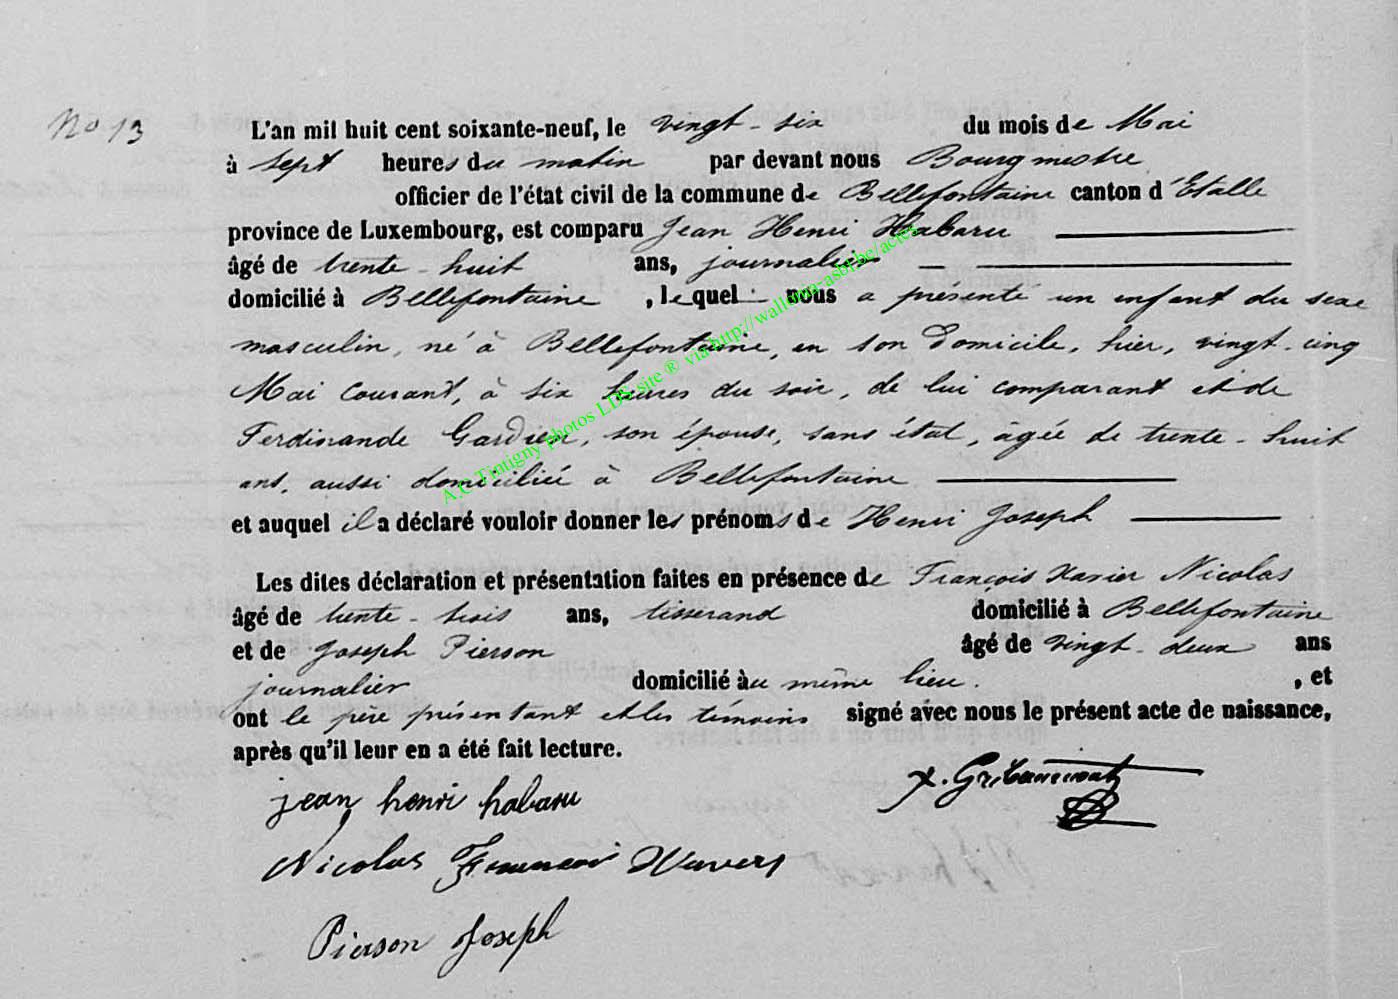 No 13
L'an mil huit cent soixante-neuf, le vingt-six du mois de Mai
à sept heures du matin par devant nous Bourgmestre
officier de l'état civil de la commune de Bellefontaine canton d'Etalle
province de Luxembourg, est comparu Jean Henri Habaru
âgé de trente-huit ans, journalier
domicilié à Bellefontaine, lequel nous a présenté un enfant du sexe
masculin, né à Bellefontaine, en son domicile, hier, vingt-cinq
Mai courant, à six heures du soir, de lui comparant et de
Ferdinande Gardien, son épouse, sans état, âgée de trente-huit
ans, aussi domiciliée à Bellefontaine
et auquel il a déclaré vouloir donner les prénoms de Henri Joseph
Les dites déclaration et présentation faites en présence de François Xavier Nicolas
âgé de trente-trois ans, tisserand domicilié à Bellefontaine
et de Joseph Pierson âgé de vingt-deux ans
journalier domicilié au même lieu. , et
ont le père présentant et les témoins signé avec nous le présent acte de naissance,
après qu'il leur en a été fait lecture.
jean henri habaru
Nicolas François
Pierson Joseph
A.C Tintigny photos LDS site ® via http://wallonia-asbl.be/actes